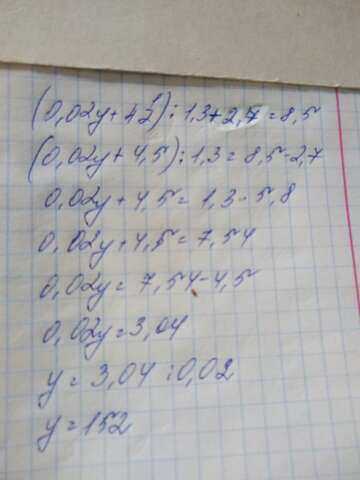 (0,02y+4½):1,3+2,7=8,5
(0,02y+4,5):1,3=8,5-2,7
0,02y+4,5=1,3·5,8
0,02y+4,5=7,54
0,02y=7,54-4,5
0,02y=3,04
y=3,04:0,02
y=152